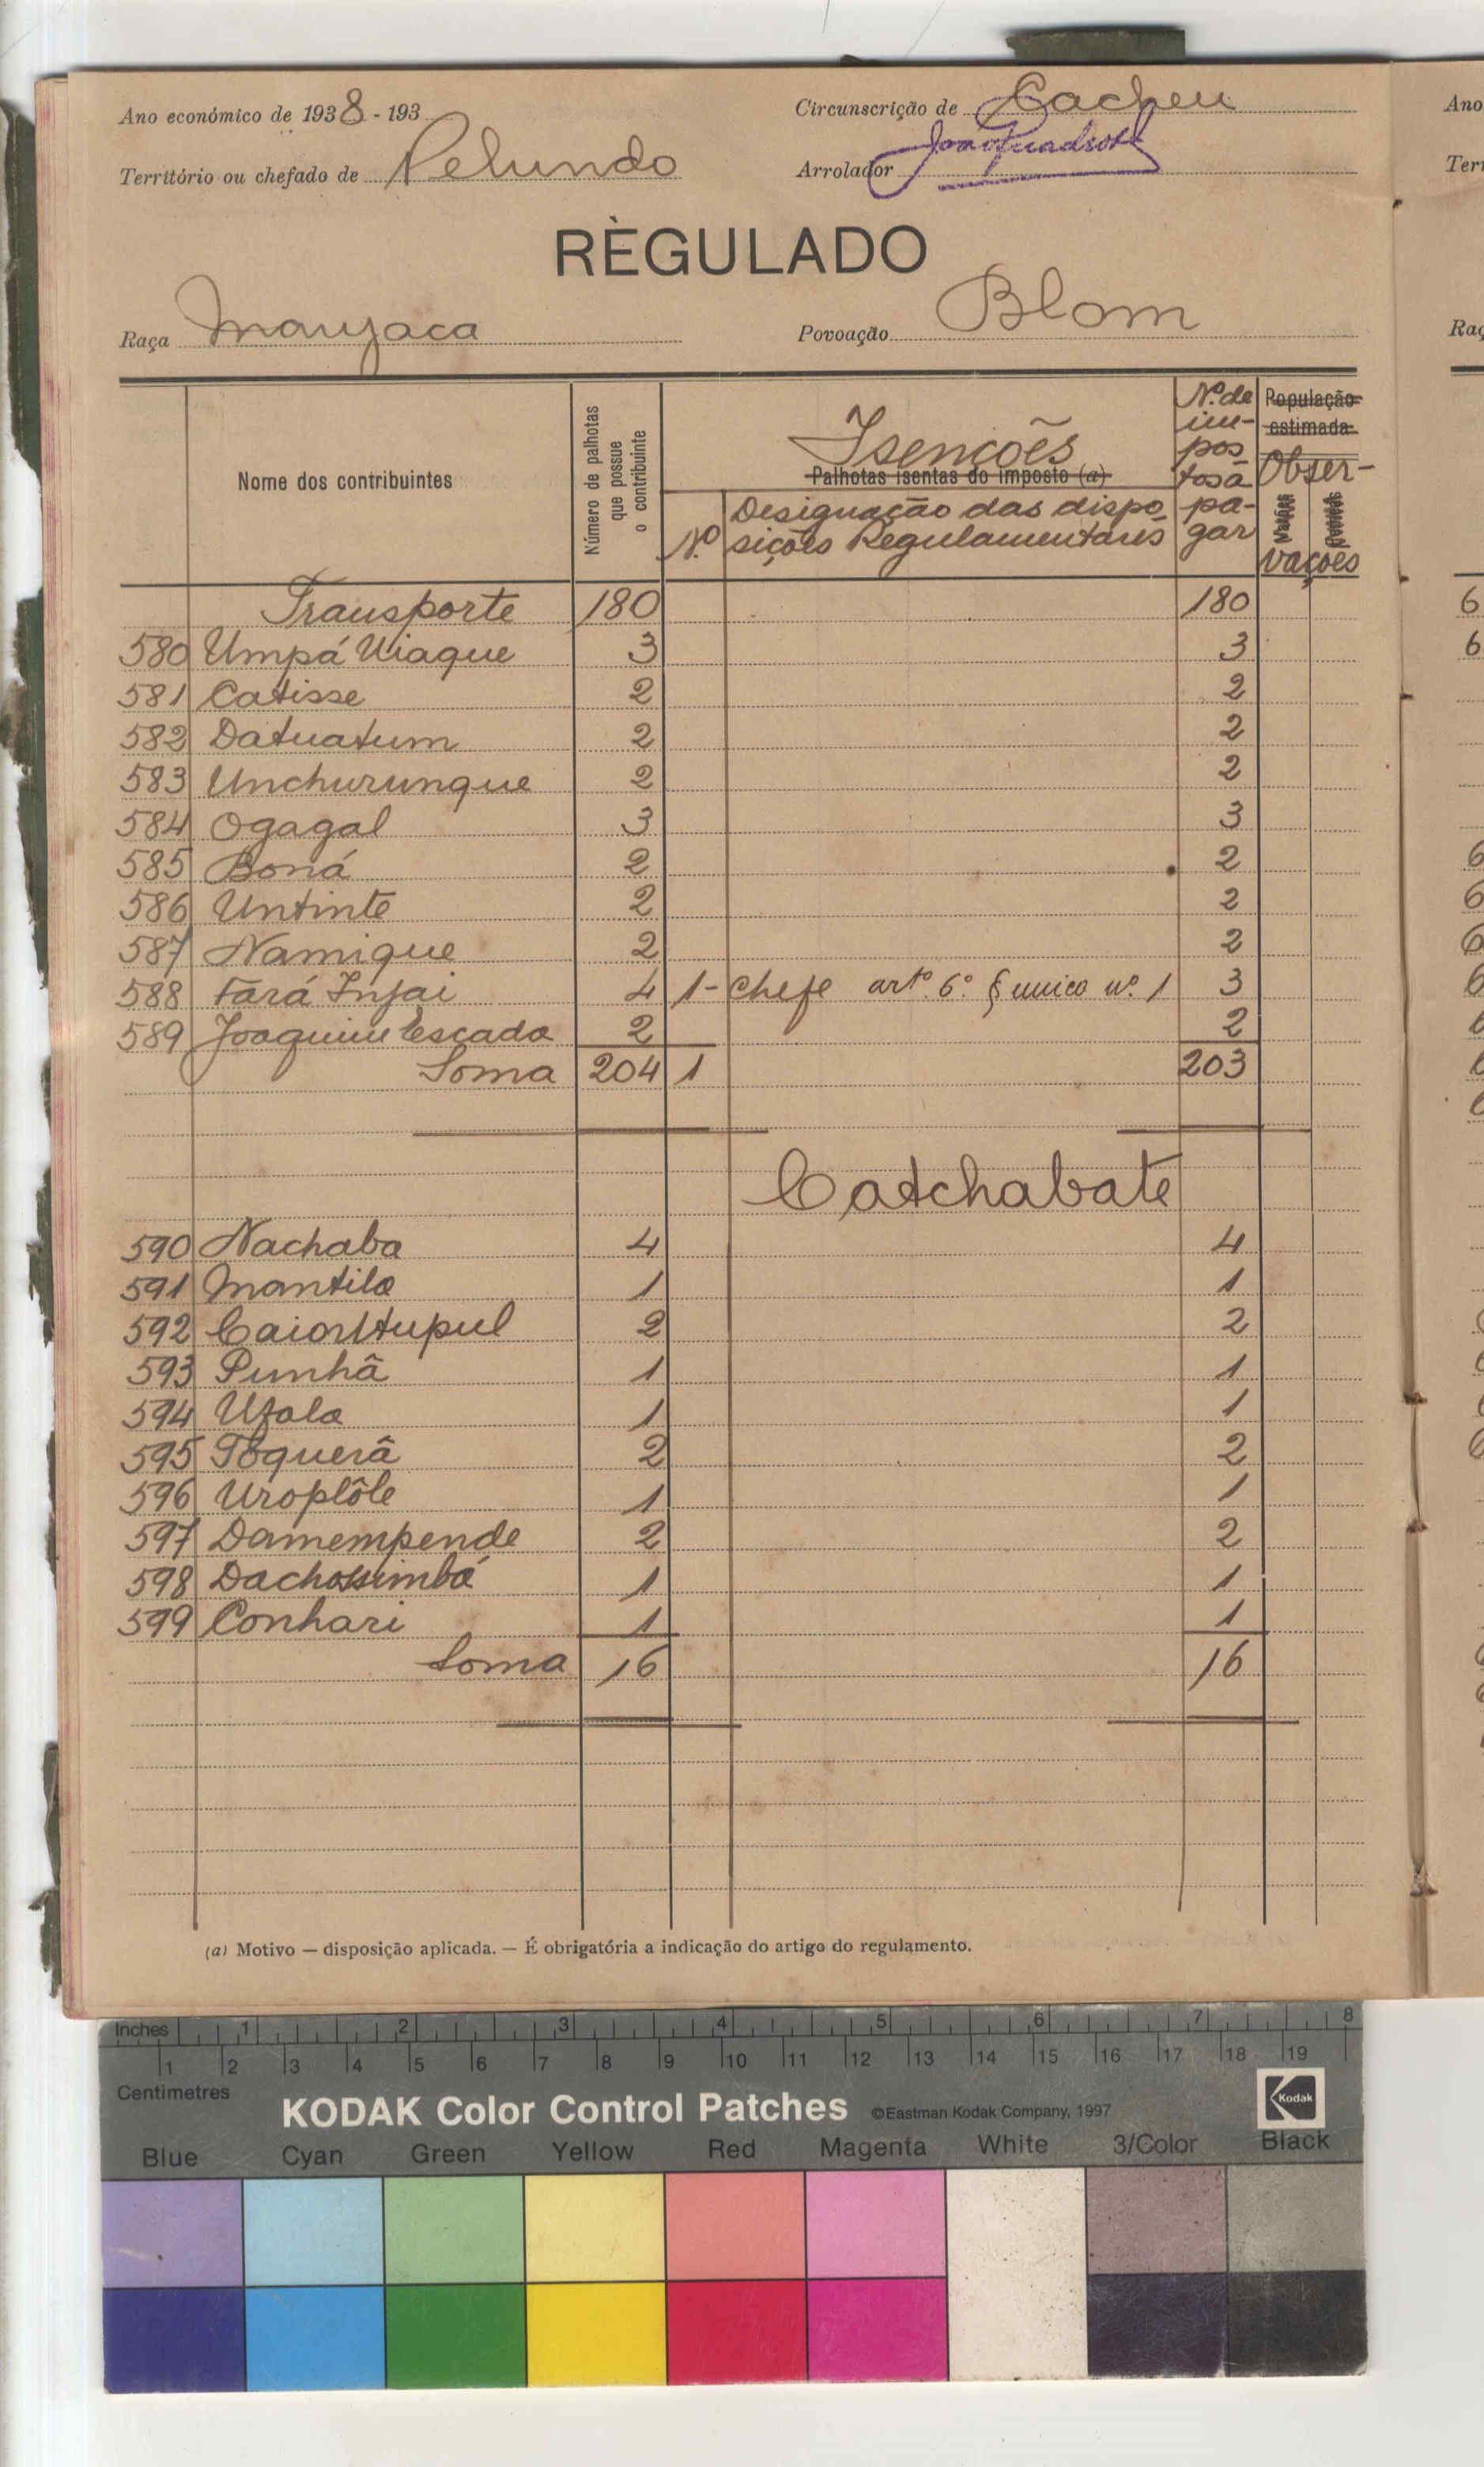 Ano económico de 1938 - 193
Circunscrição de Cacheu
Território ou chefado de Pelundo
Arrolador
RÈGULADO
Raça Manjaca
Povoação Blom
Nome dos contribuintes
Número de palhotas que possue o contribuinte
Isenções
Palhotas isentas do imposto (a)
Nº
Designação das disposições Regulamentares
Nº de impostos a pagar
População estimada
Observações
Transporte 180 180
580 Umpá Uiaque 3 3
581 Catisse 2 2
582 Datuatum 2 2
583 Unchurunque 2 2
584 Ogagal 3 3
585 Boná 2 2
586 Untinte 2 2
587 Namique 2 2
588 Fará Injai 4 1- Chefe artº. 6º § unico nº. 1 3
589 Joaquim Escada 2 2
Soma 204 1 203
Catchabate
590 Nachaba 4 4
591 Mantila 1 1
592 2 2
593 Punhâ 1 1
594 Ufala 1 1
595 Toquerâ 2 2
596 Uroplôle 1 1
597 Damempende 2 2
598 1 1
599 Conhari 1 1
Soma 16 16
(a) Motivo — disposição aplicada. — É obrigatória a indicação do artigo do regulamento.
Inches 1 2 3 4 5 6 7 8
1 2 3 4 5 6 7 8 9 10 11 12 13 14 15 16 17 18 19
Centimetres
KODAK Color Control Patches ©Eastman Kodak Company, 1997 Kodak
Blue Cyan Green Yellow Red Magenta White 3/Color Black